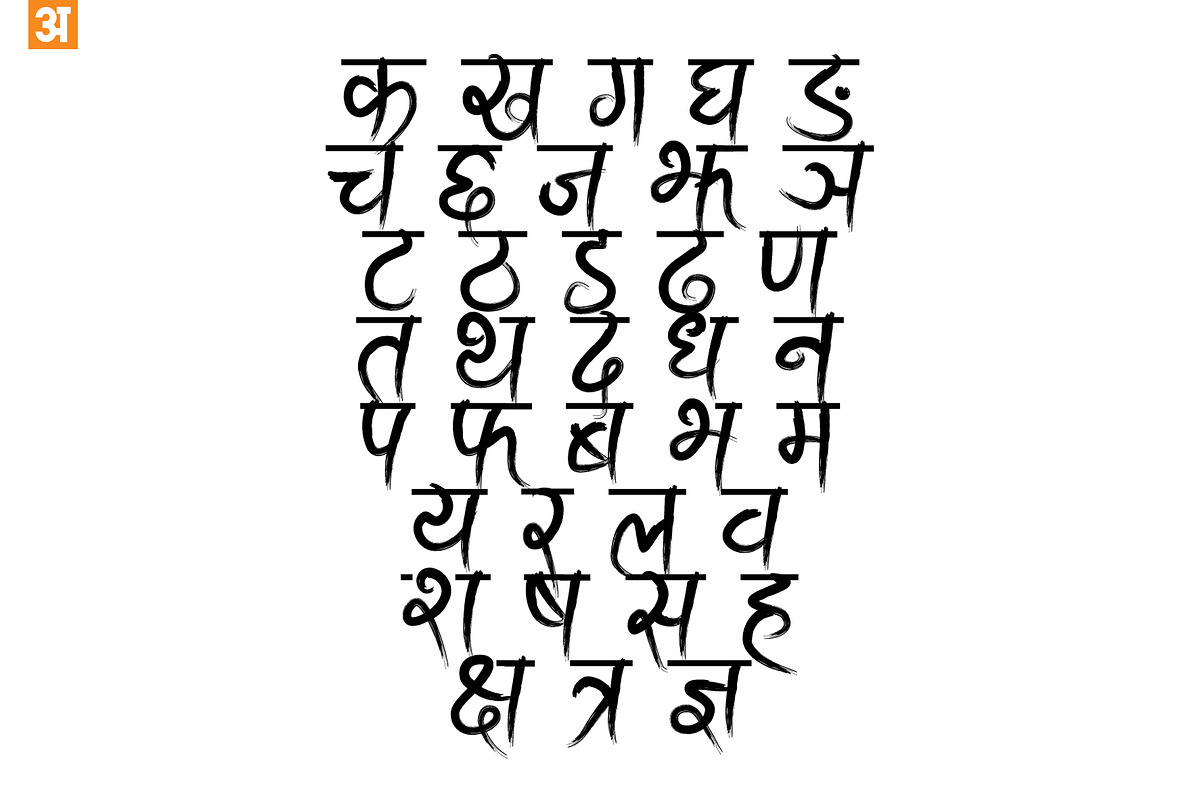 अ
क ख ग घ ङ
च छ ज झ ञ
ट ठ ड ढ ण
त थ द ध न
प फ ब भ म
य र ल व
श ष स ह
क्ष त्र ज्ञ